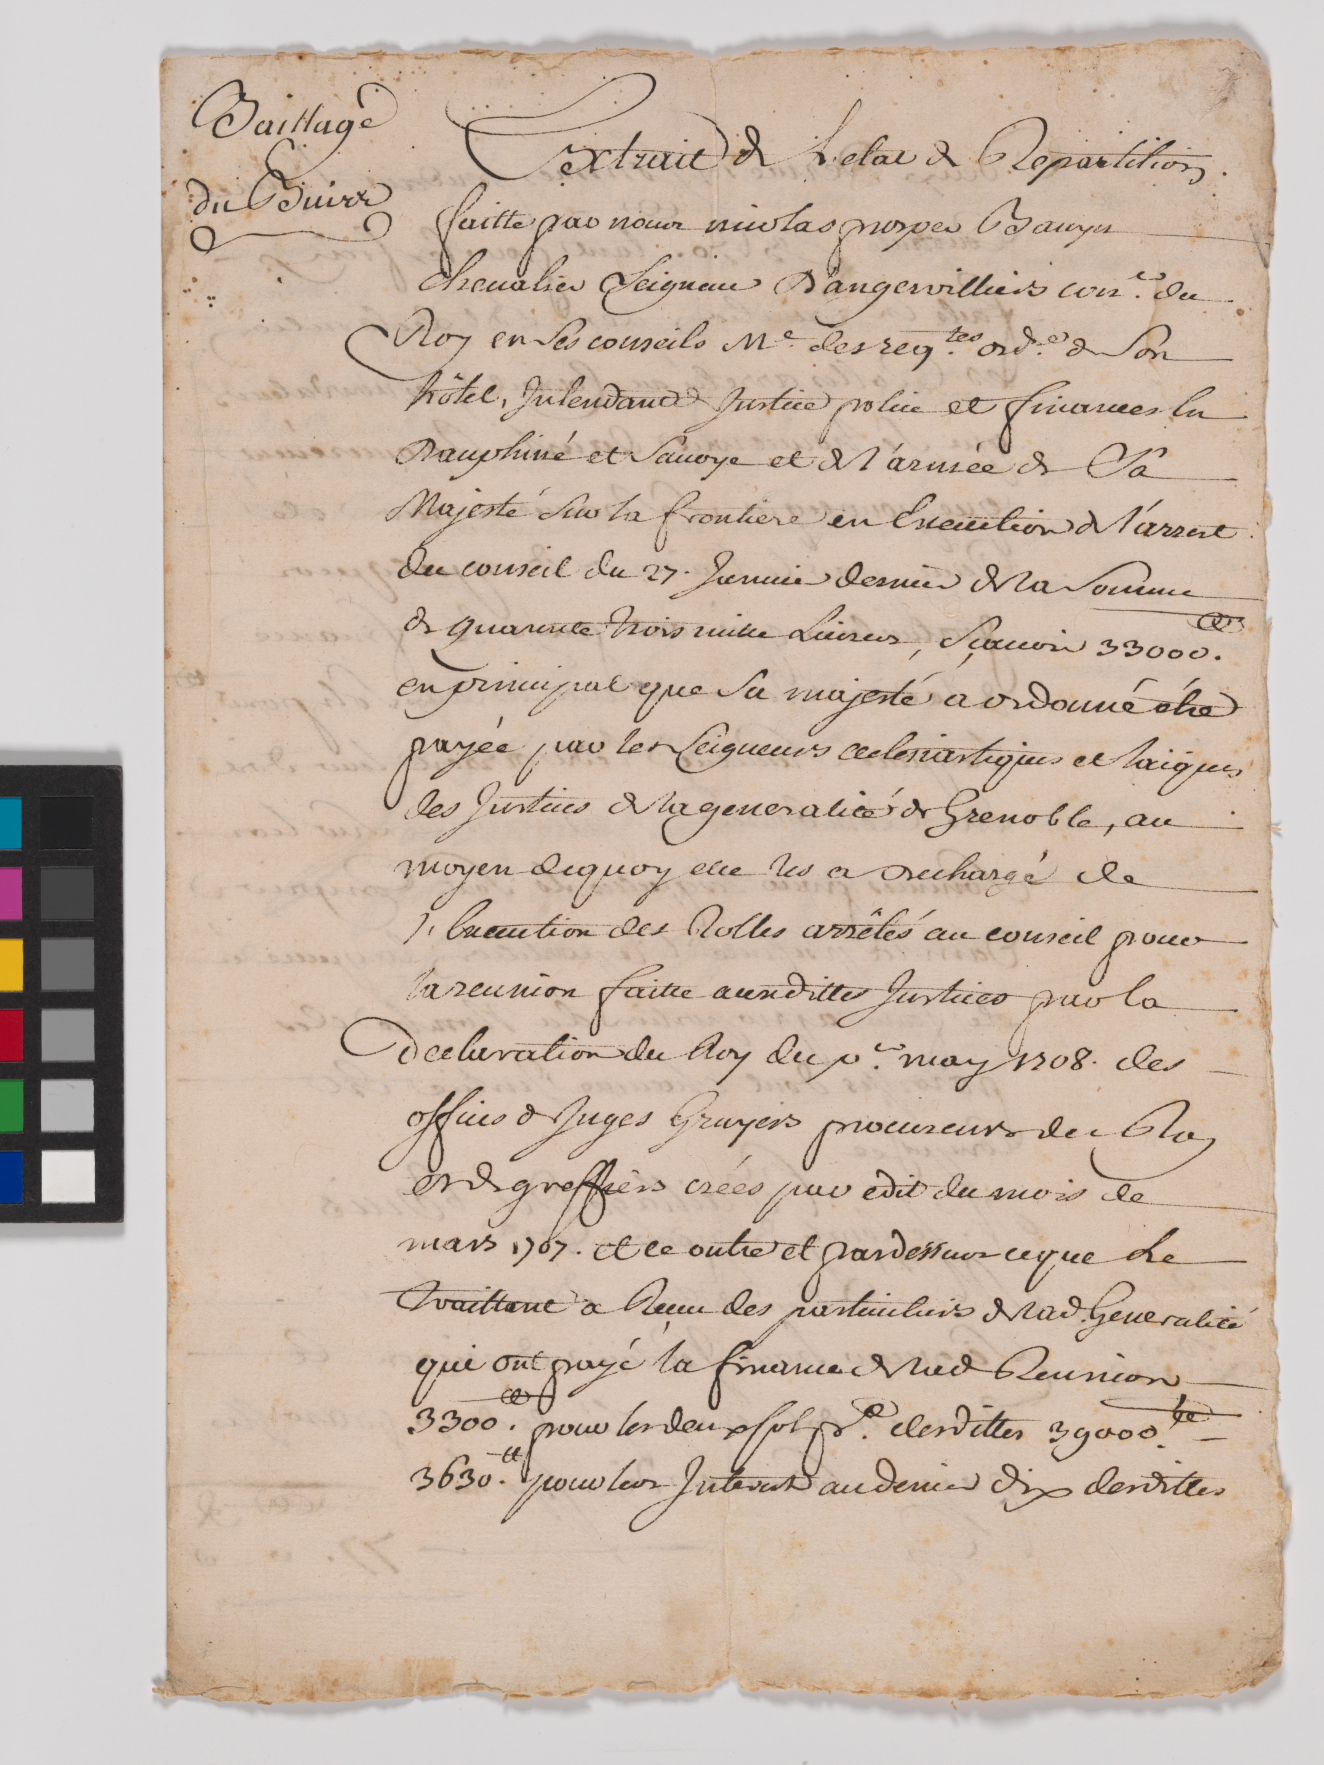 Baillage
du Buixs
Extrait de Letat de Repartition
faitte par nous nicolas prosper Bauyn
chevalier Seigneur Dangervilliers con.er du
Roy en Ses conseils Me. des reqtes. ord.re de Son
hôtel, Intendant de Justice police et finances En
Dauphiné et Savoye et de l'armée de Sa
Majesté Sur la frontiere en Execution de l'arrest
du conseil du 27. Janvier dernier de la Somme
de quarante trois mille Livres, Scavoir 33000.tt
en principal que Sa majesté a ordonné étre
payée par les Seigneurs eclesiastiques et laiques
des Justices de la generalité de Grenoble, au
moyen dequoy elle les a dechargé de
l'Execution des Rolles arrêtés au conseil pour
la reunion faitte auxdittes Justices par la
declaration du Roy du p.er may 1708. des
offices de Juges Gruyers procureurs du Roy
et de greffiers créés par edit du mois de
mars 1707. et ce outre et pardessus ceque Le
traittant a Receu des particuliers de lad. Generalité
qui ont payé la finance de lad Reunion
3300.tt pour les deux sols pr.£ desdittes 33000.tt
3630.tt pour les Interests au denier dix desdittes